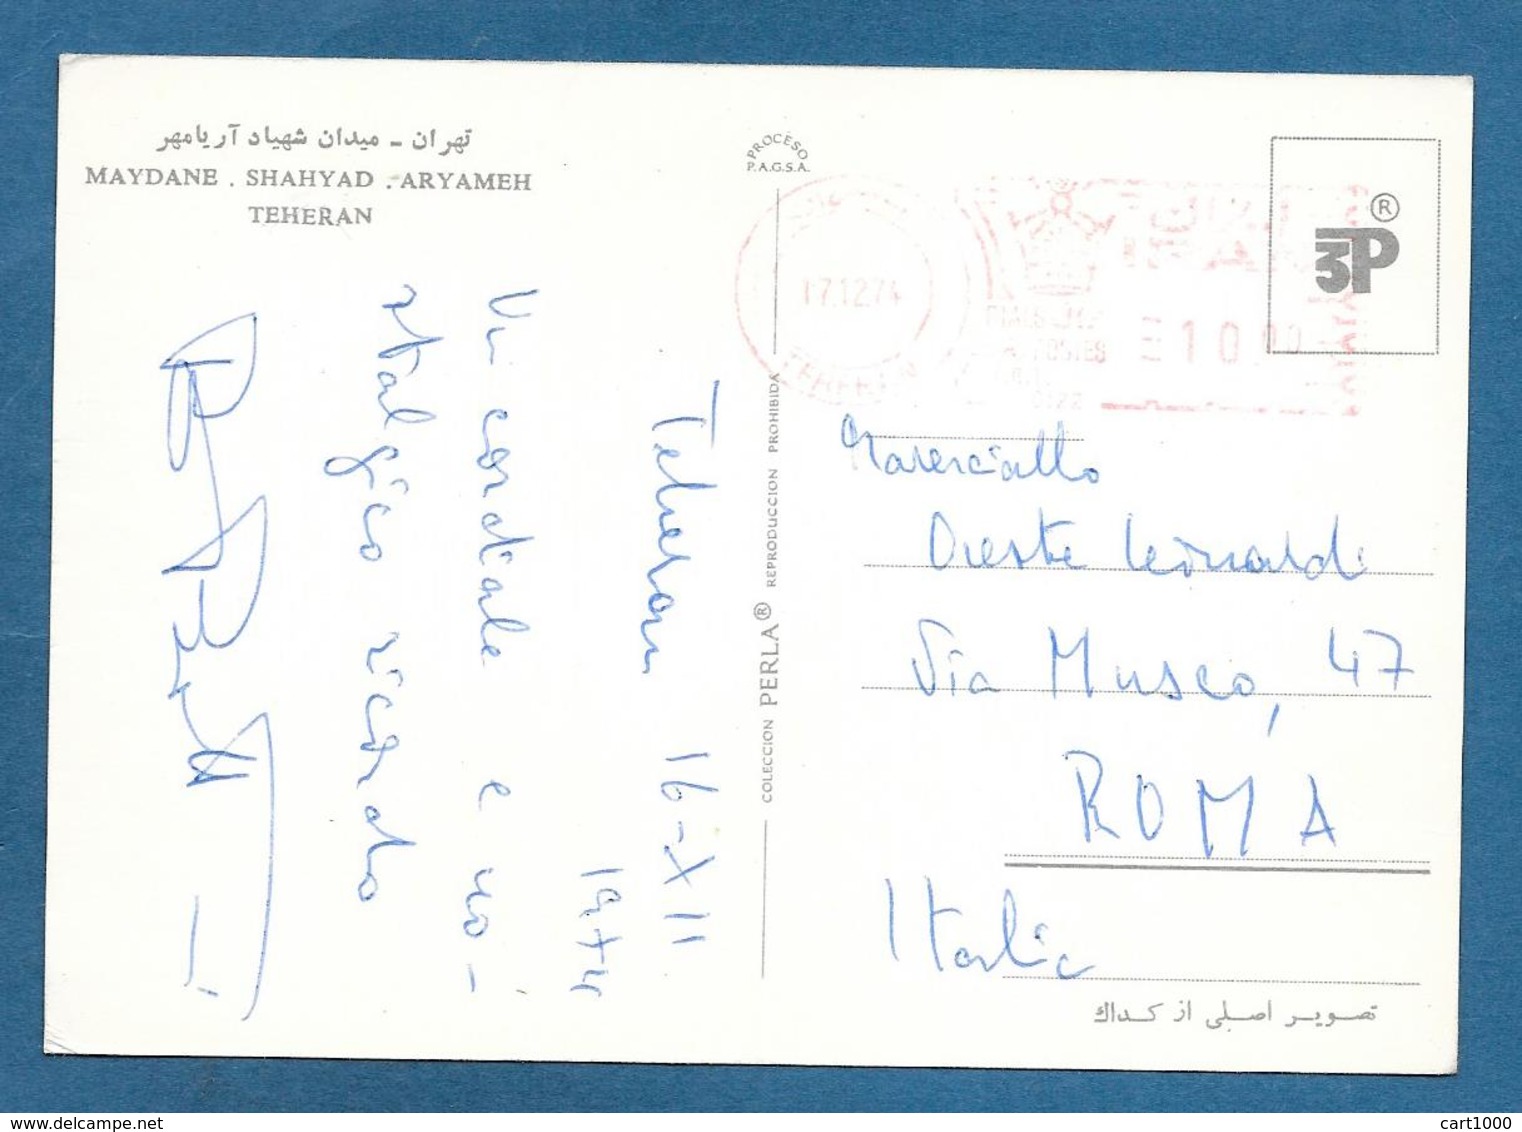 تهران - میدان شهیاد آریامهر
MAYDANE . SHAHYAD . ARYAMEH
TEHERAN
PROCESO
P.A.G.S.A.
17.12.74
TEHERAN
POSTES
10.00
3P®
Teheran 16-XII
1974
Vi cordiale e no-
stalgico ricordo
COLECCION PERLA® REPRODUCCION PROHIBIDA
Maresciallo
Oreste Leonardi
Via Museo, 47
ROMA
Italia
تصویر اصلی از کداك
cart1000